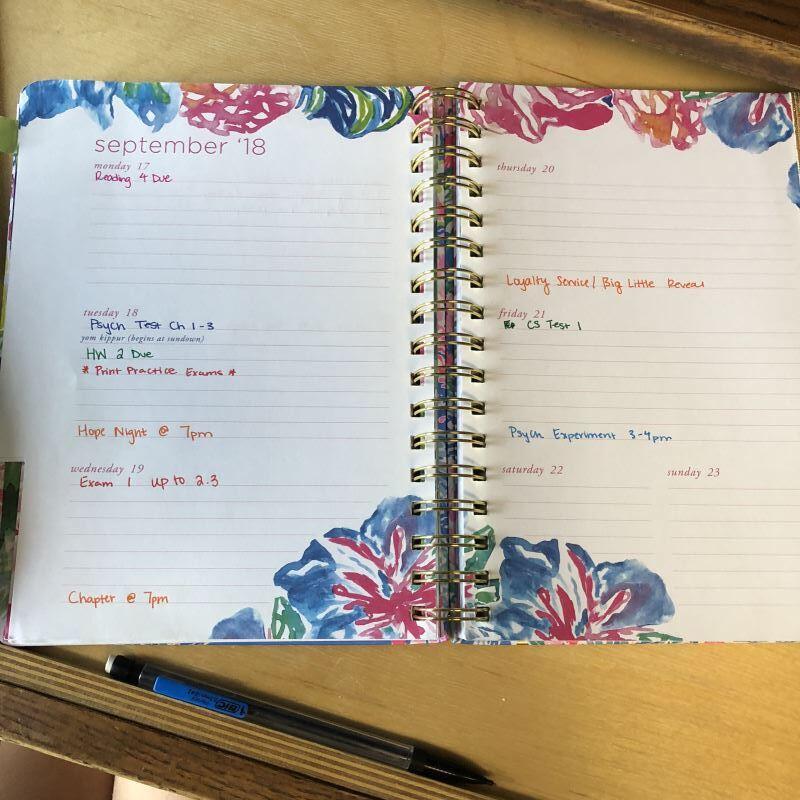 september '18
monday 17
Reading 4 Due
tuesday 18
Psych Test Ch 1-3
yom kippur (begins at sundown)
HW 2 Due
* Print Practice Exams *
Hope Night @ 7pm
wednesday 19
Exam 1 up to 2.3
Chapter @ 7pm
thursday 20
Loyalty Service / Big Little Reveal
friday 21
CS Test 1
Psych Experiment 3-4pm
saturday 22
sunday 23
BIC